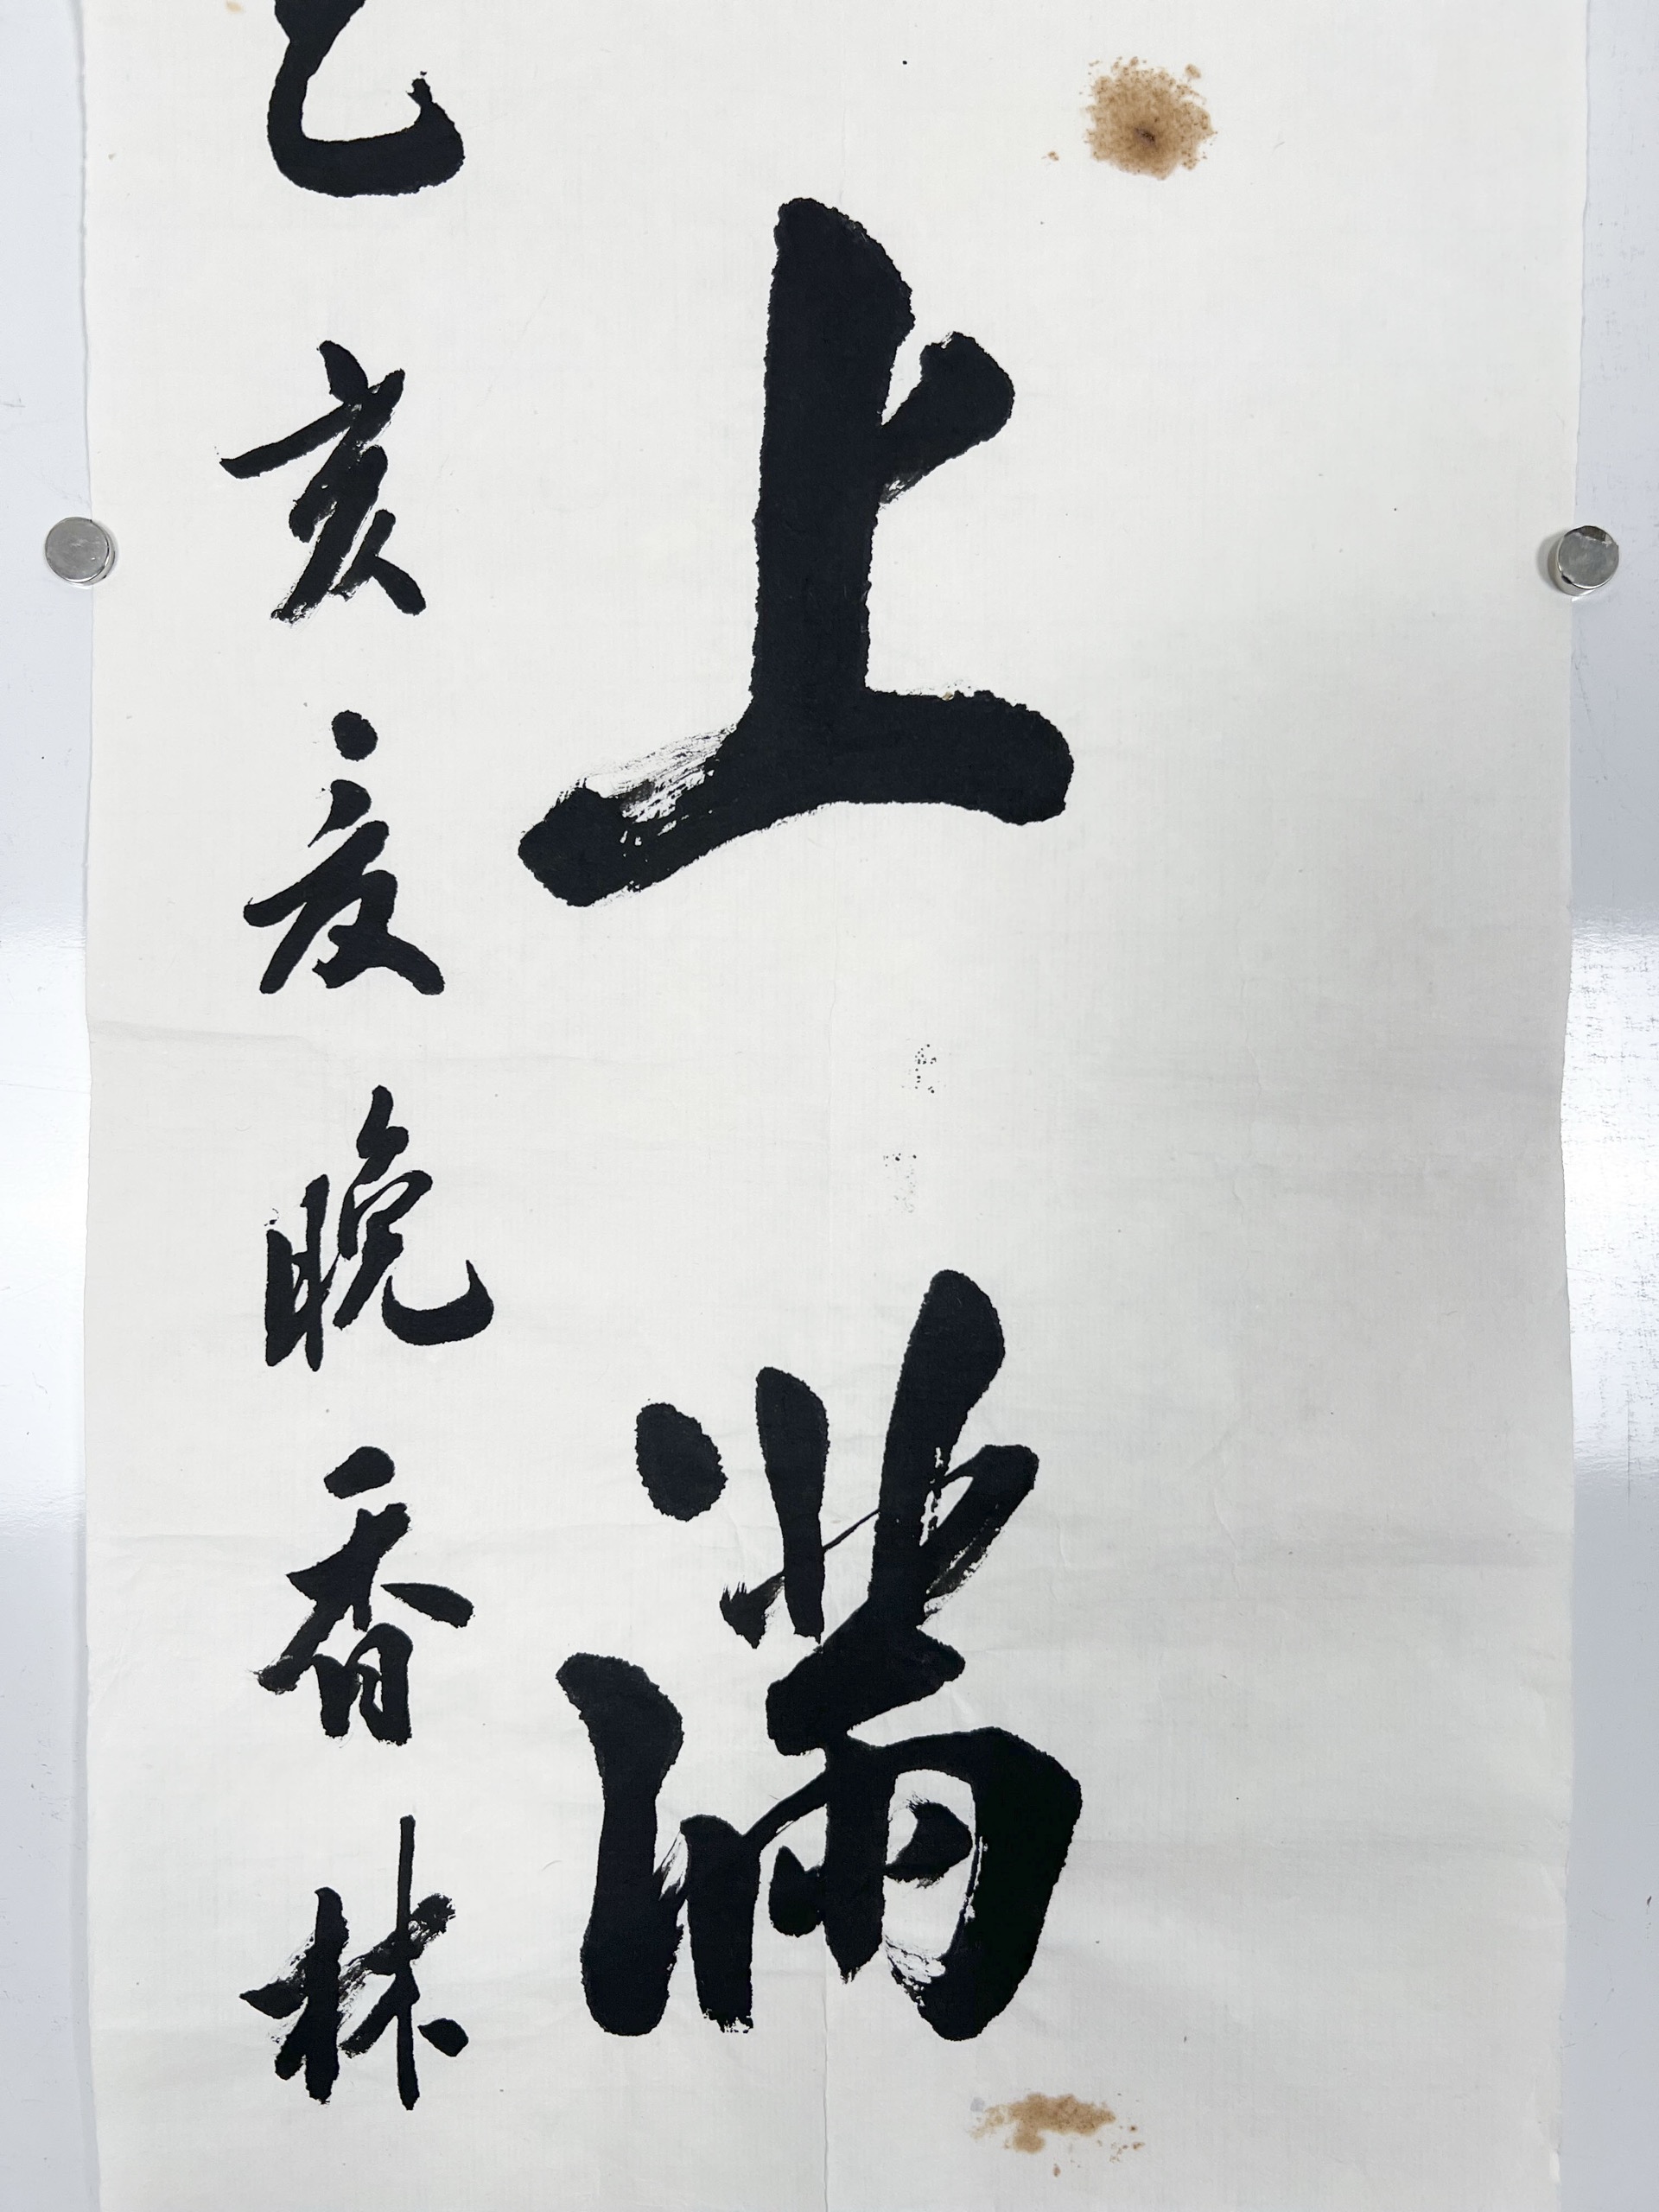 上满
乙亥夜晚香林